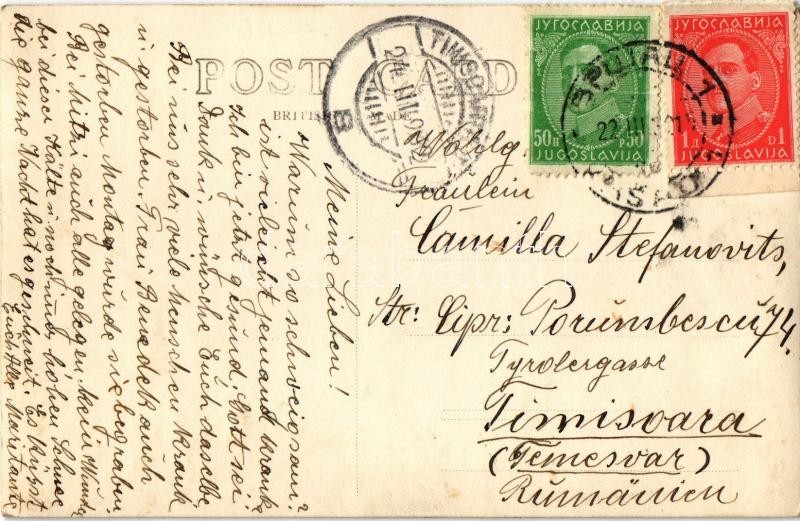 POST CARD
BRITISH MADE
TIMISOARA
24 III
B
ЈУГОСЛАВИЈА
50 П P 50
JUGOSLAVIJA
ЈУГОСЛАВИЈА
1 Д D 1
JUGOSLAVIJA
22 III
Meine Lieben!
Warum so schweigsam?
ist vieleicht jemand krank
Ich bin jetzt gesund. Gott sei
Dank u. wünsche Euch dasselbe
Bei uns sehr viele Menschen krank
u gestorben. Frau Benedek auch
gestorben Montag wurde sie begraben.
Bei Mitzi auch alle gelegen. Kein Wunder
bei dieser Kälte u. noch immer hohen Schnee
die ganze Nacht hat es geschneit. Es küsst
Euch Alle
Wohlg.
Fräulein
Camilla Stefanovits,
Str: Cipr: Porumbescu 74.
Tyrolergasse
Timisoara
(Temesvar)
Rumänien
darabanth